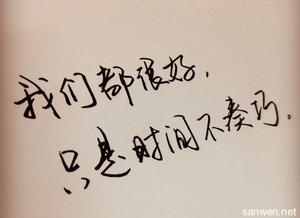 我们都很好,
只是时间不奏巧.
sanwen.net